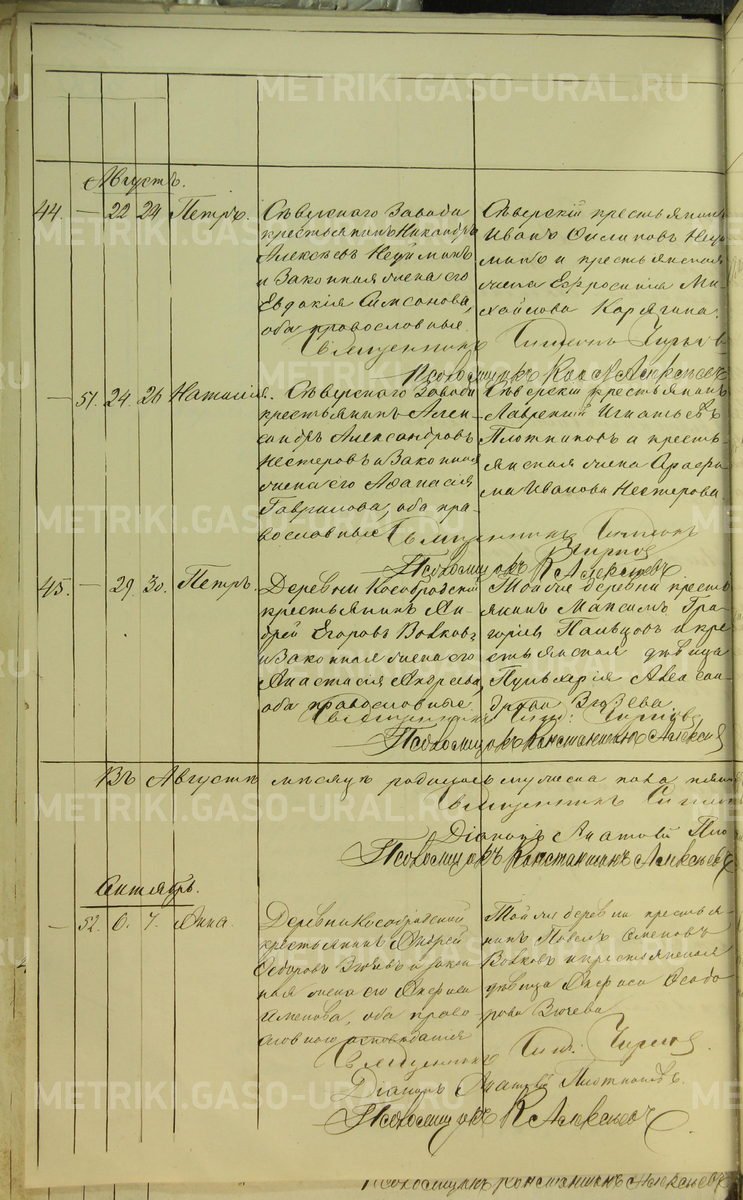 METRIKI.GASO-URAL.RU
Августъ.
44. — 22 24 Петръ.
Сѣверскаго Завода
крестьянинъ Никандръ
Алексѣевъ
и законная жена его
Евдокія Самсонова,
оба православные.
Сѣверскій крестьянинъ
Иванъ Филиповъ
и крестьянская
жена Ефросинія Ми-
хайлова Карягина.
Священникъ
Псаломщикъ К. Алексѣевъ
— 51. 24. 26 Наталія.
Сѣверскаго Завода
крестьянинъ Алек-
сандръ Александровъ
Нестеровъ и законная
жена его Афанасія
Гаврилова, оба пра-
вославные
Сѣверскій крестьянинъ
Лаврентій Игнатьевъ
Плотниковъ и кресть-
янская жена Ѳрафи-
ма Иванова Нестерова
Священникъ
Псаломщикъ К. Алексѣевъ
45. — 29. 30. Петръ.
Деревни Кособродской
крестьянинъ Ан-
дрей Егоровъ Волковъ
и законная жена его
Анастасія Андреева,
оба православные.
Той же деревни кресть-
янинъ Максимъ Гри-
горьевъ Пальцовъ и кре-
стьянская дѣвица
Пульхерія Алексан-
дрова
Священникъ
Псаломщикъ Константинъ Алексѣевъ
Въ Августѣ мѣсяцѣ родилось мужеска пола
Священникъ
Діаконъ
Псаломщикъ Константинъ Алексѣевъ
Сентябрь.
— 52. 6. 7. Анна.
Деревни Кособродской
крестьянинъ Андрей
Ѳедоровъ и закон-
ная жена его Анфиса
оба право-
славнаго исповѣданія
Той же деревни крестья-
нинъ Павелъ Семеновъ
Волковъ и крестьянская
дѣвица Анфиса Ѳеодо-
рова
Священникъ
Діаконъ Плотниковъ.
Псаломщикъ К. Алексѣевъ
Псаломщикъ Константинъ Алексѣевъ